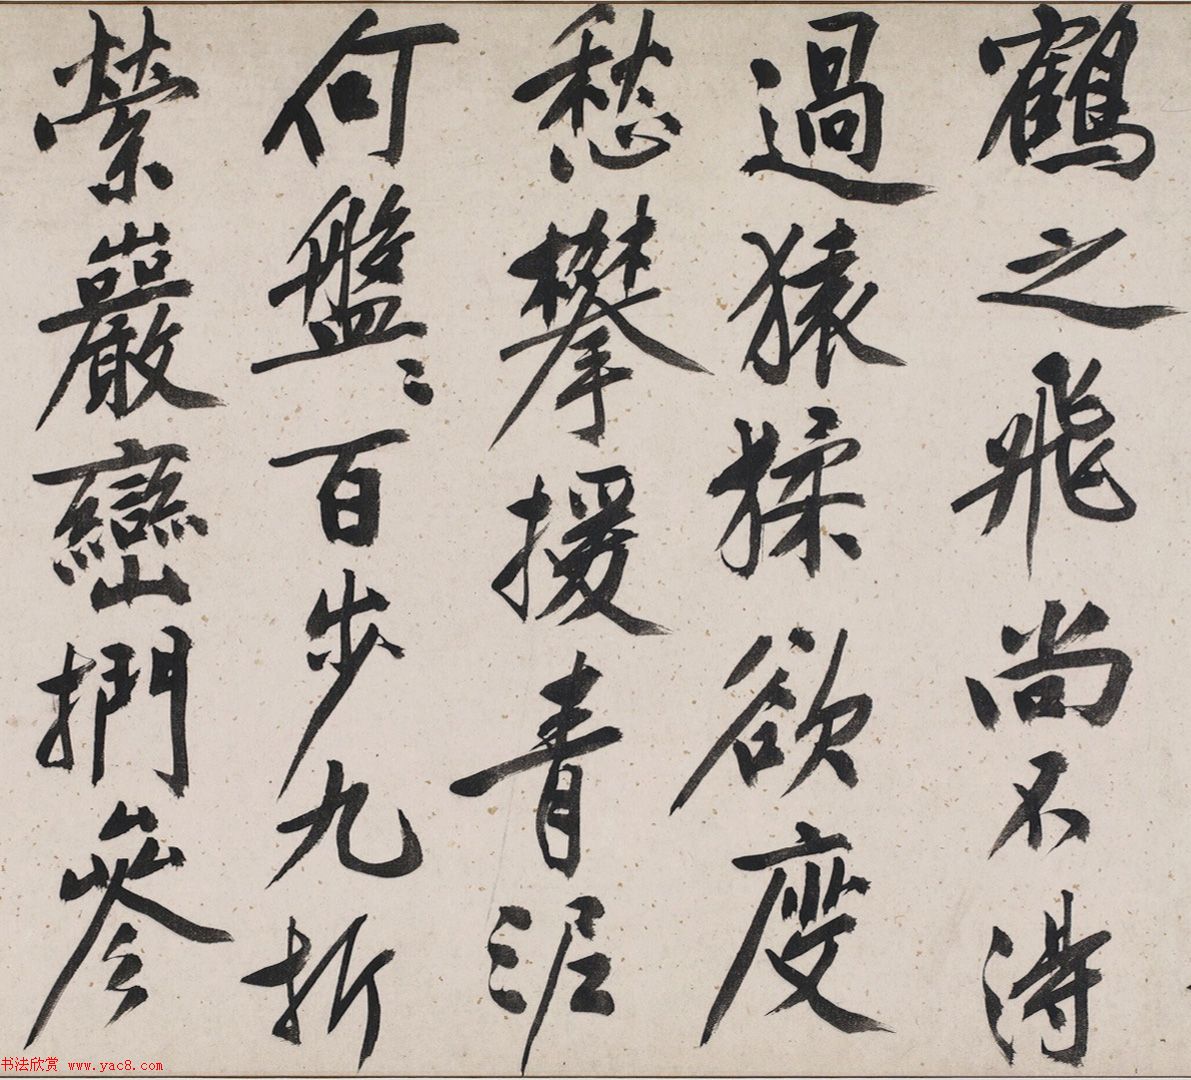 鶴之飛尚不得
過猿猱欲度
愁攀援青泥
何盤〻百步九折
縈巖巒捫參
书法欣赏 www.yac8.com